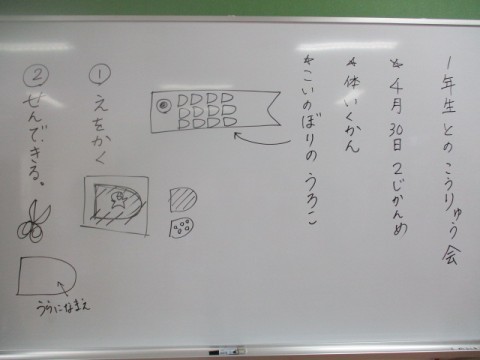 1年生とのこうりゅう会
☆4月30日2じかんめ
☆体いくかん
☆こいのぼりのうろこ
①えをかく
②せんできる。
うらになまえ